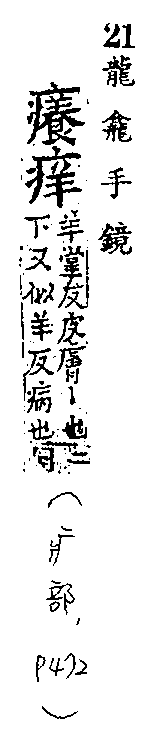 21龍龕手鏡
癢痒羊掌反皮膚〻也二
下又似羊反病也
(疒部,
P472)